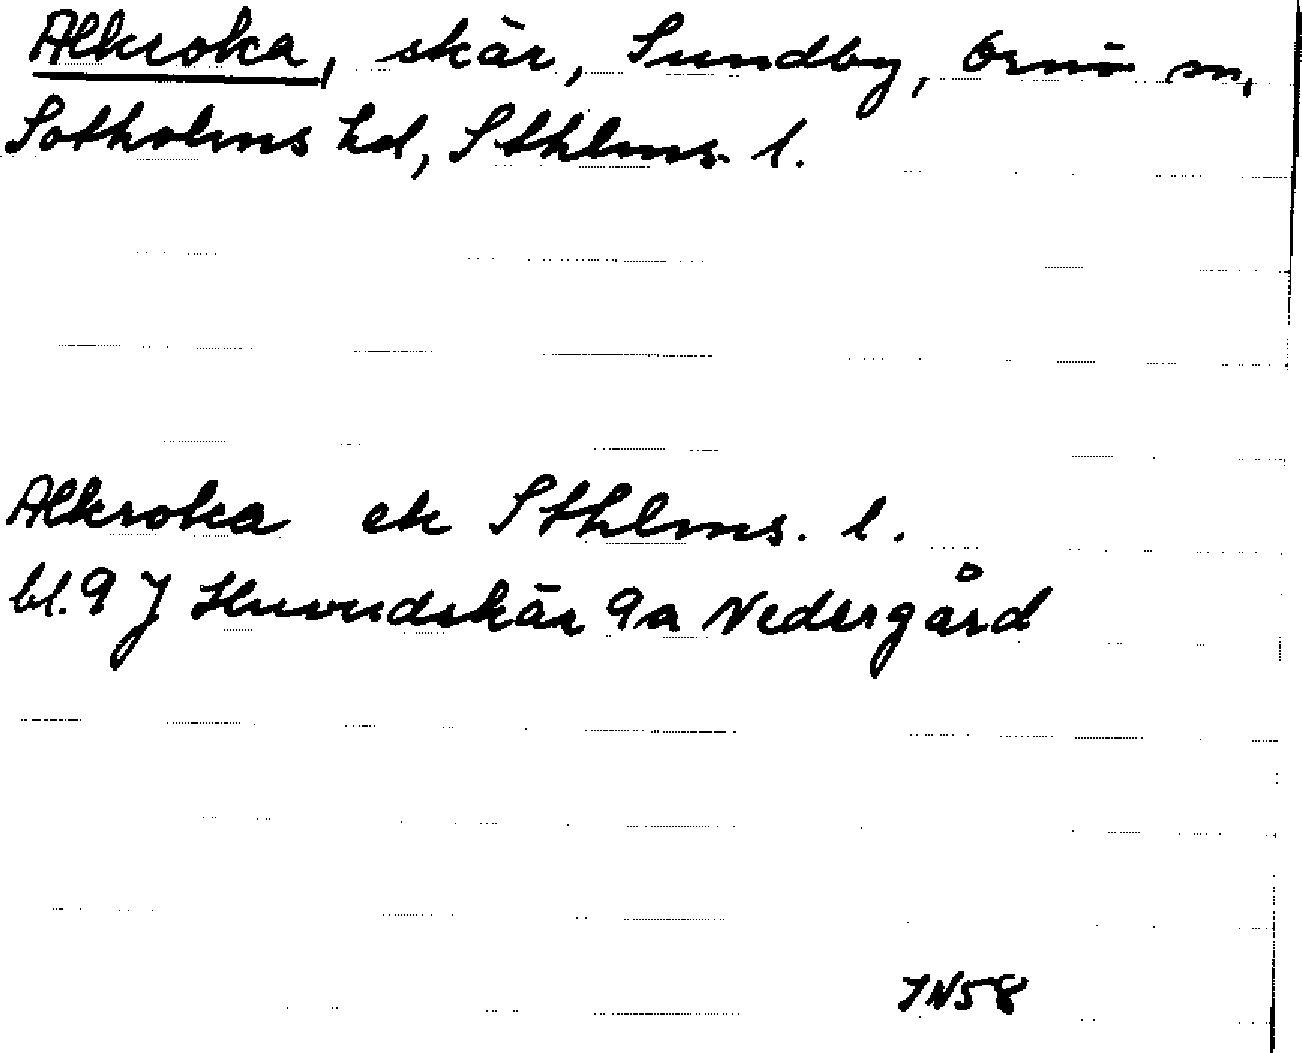 Alkroka, skär, Sundby, Ornö sn,
Sotholms hd, Sthlms l.
Alkroka ek Sthlms. l.
bl. 9 J Huvudskär 9a Nedergård
JN58